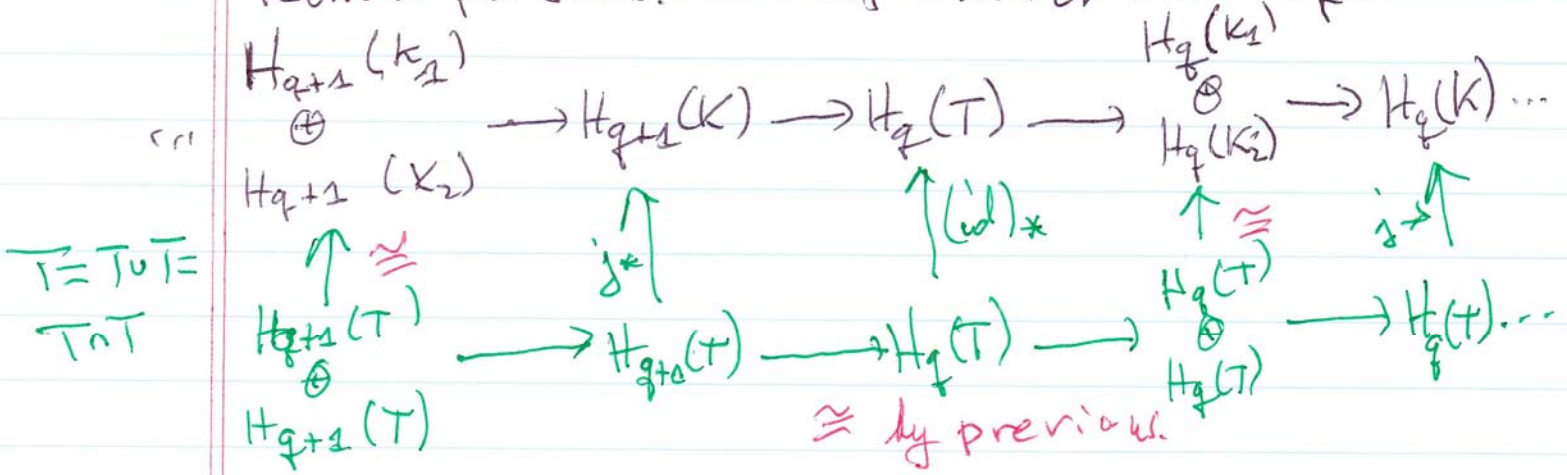 H_{q+1}(K_1) ⊕ H_{q+1}(K_2) → H_{q+1}(K) → H_q(T) → H_q(K_1) ⊕ H_q(K_2) → H_q(K) ...
...
↑ ≅ j* ↑ ↑ (id)_* ↑ ≅ j* ↑
T = T ∪ T =
T ∩ T
H_{q+1}(T) ⊕ H_{q+1}(T) → H_{q+1}(T) → H_q(T) → H_q(T) ⊕ H_q(T) → H_q(T) ...
≅ by previous.